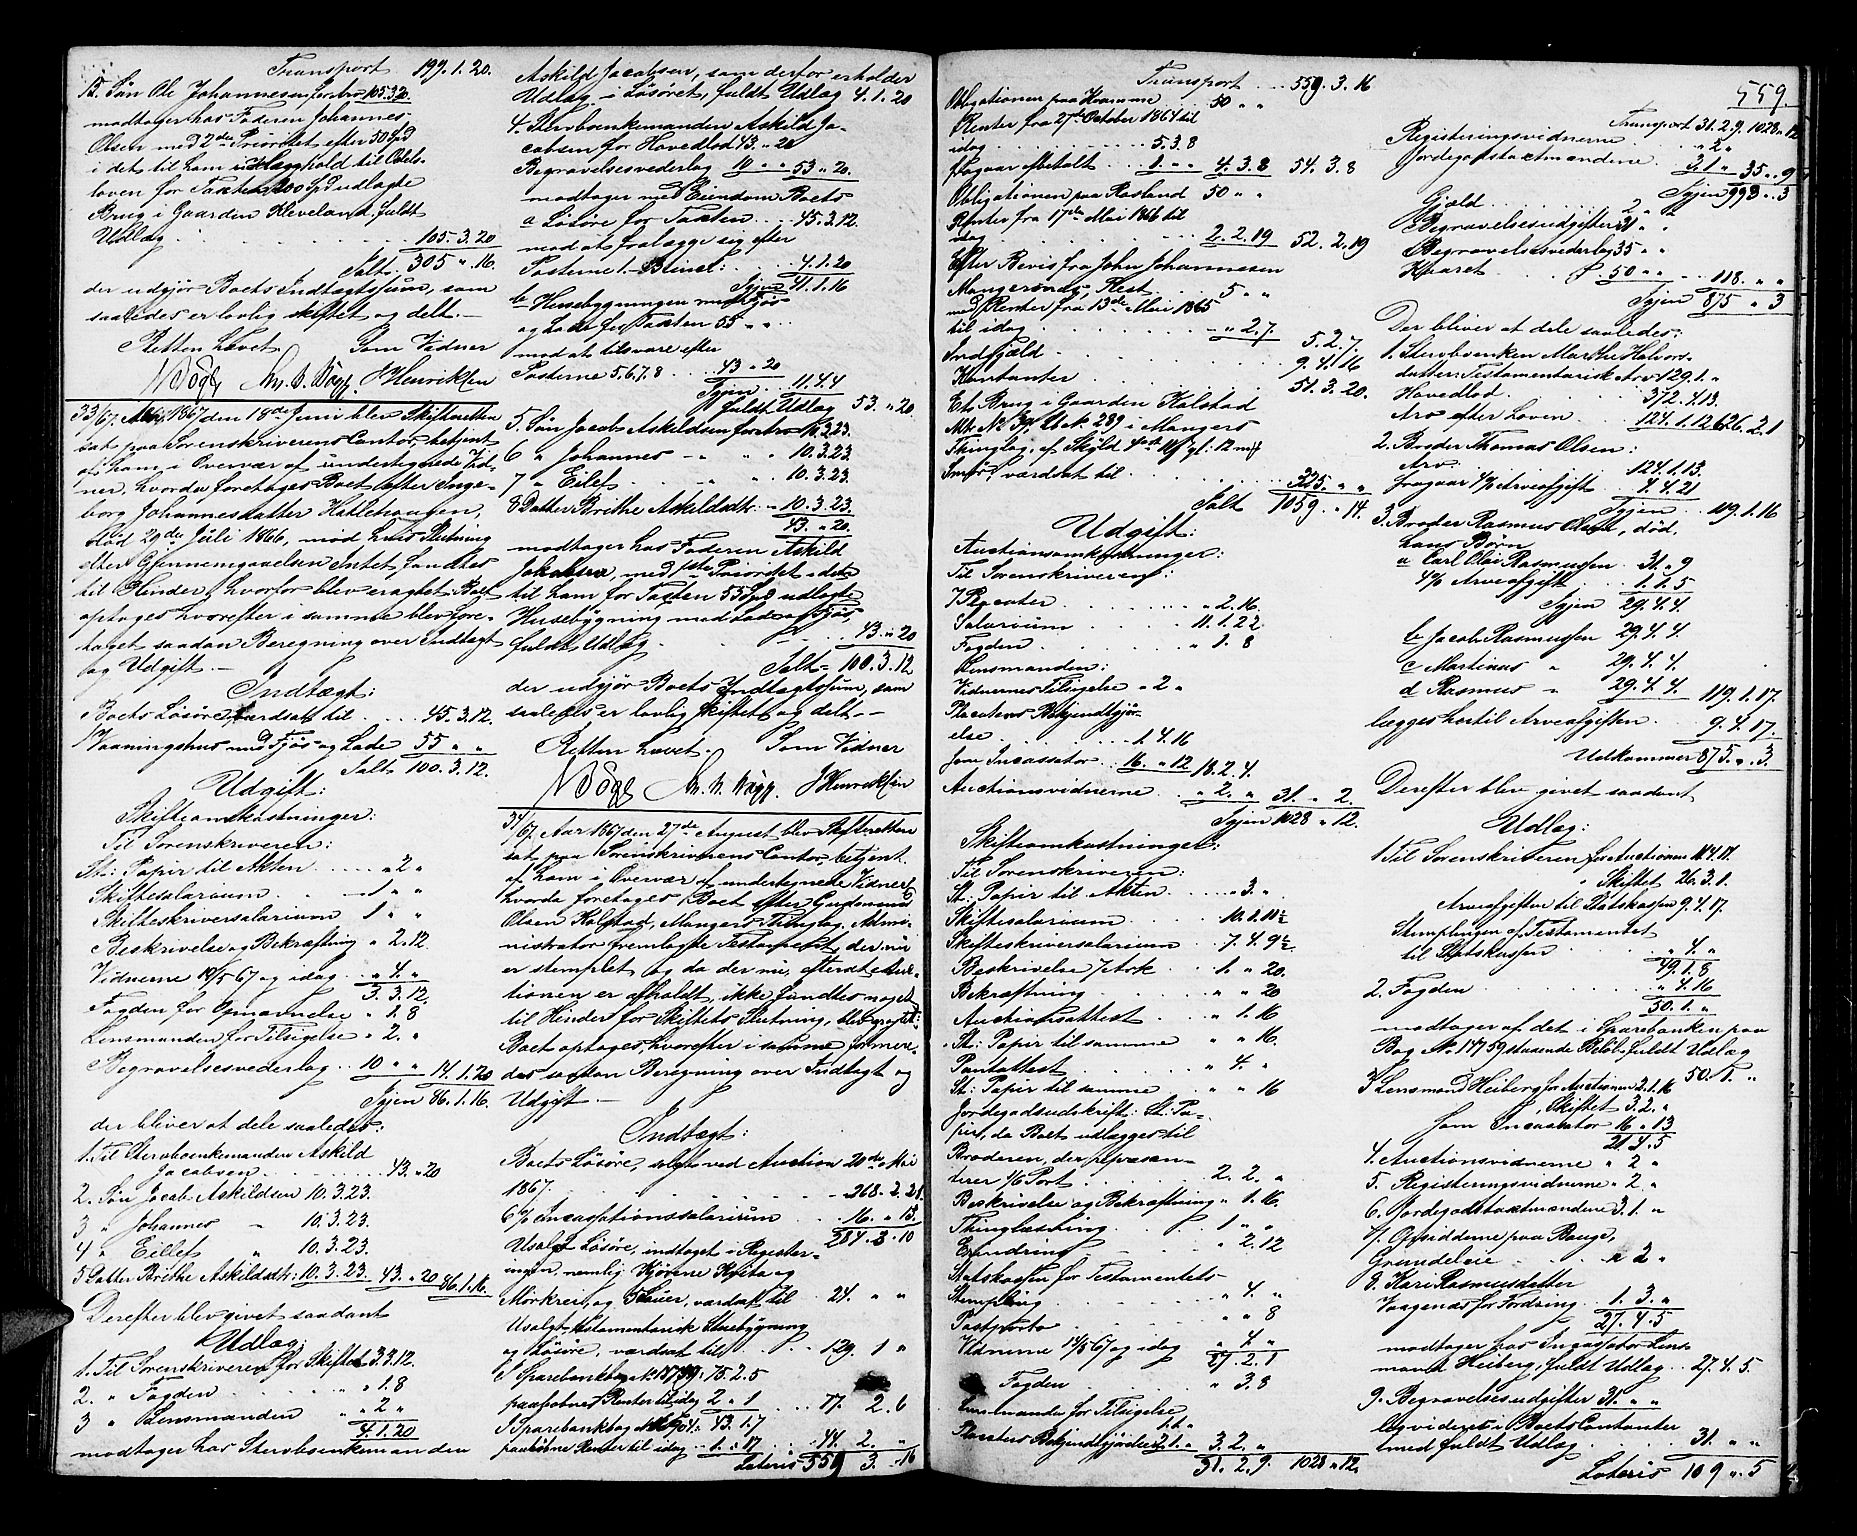 Transport 199.1.20.
13. Søn Ole Johannesen for Arv 105.3.20
modtager hos Faderen Johannes
Olsen med 2den Prioritet efter 50 Spd
i det til ham i Udlæg hold til Odels-
loven for Taxten 200 Spd udlagte
Brug i Gaarden Kleveland fuldt
Udlæg 105.3.20
Salt 305 " 16.
der udgjør Boets Indtægtssum, som
saaledes er lovlig skiftet og delt.
Retten hævet. Som Vidner
33/67. Aar 1867 den 18de Juni blev Skifteretten
sat paa Sorenskriverens Contor, betjent
af ham i Overvær af undertegnede Vid-
ner, hvorda foretoges Boet efter Inge-
borg Johannesdatter Hatlehaugen,
død 29de Juli 1866, mod hvis Slutning
efter Gjennemgaaelsen Intet fandtes
til Hinder, hvorfor blev eragtet: Boet
optages, hvorefter i samme blev fore-
taget saadan Beregning over Indtægt
og Udgift.
Indtægt:
Boets Løsøre, værdsat til 45.3.12.
1 Vaaningshus med Fjøs og Lade 55 " "
Salt 100.3.12.
Udgift:
Skifteomkostninger:
Til Sorenskriveren:
St: Papir til Akten " 2 "
Skiftesalarium 1 " "
Skifteskriversalarium 1 " "
Beskrivelse og Bekræftning " 2.12.
Vidnerne 14/5 67 og idag " 4. "
3.3.12.
Fogden for Opnævnelse " 1.8
Lensmanden for Tilsigelse " 2. "
Begravelsesvederlag 10 " " 14.1.20
Igjen 86.1.16.
der bliver at dele saaledes:
1. Til Stervboenkemanden Askild
Jacobsen 43. " 20
2. Søn Jacob Askildsen 10.3.23.
3 " Johannes " 10.3.23.
4 " Eilef " 10.3.23.
5 Datter Brithe Askildsdtr: 10.3.23. 43. " 20 86.1.16.
Derefter blev givet saadant
Udlæg:
1. Til Sorenskriveren for Skiftet 3.3.12.
2. " Fogden " 1.8
3 " Lensmanden " 2 "
4.1.20
modtager hos Stervboenkemanden
Askild Jacobsen, som derfor erholder
Udlæg i Løsøret, fuldt Udlæg 4.1.20
4. Stervboenkemanden Askild Ja-
cobsen for Hovedlod 43. " 20
Begravelsesvederlag 10 " " 53 " 20.
modtager med Eiendom Boets
a Løsøre for Taxten 45.3.12.
mod at fralægge sig efter
Posterne 1 - 3 4.1.20
Igjen 41.1.16
b Husebygningen med Fjøs
og Lade for Taxten 55 " "
mod at tilsvare efter
Posterne 5.6.7.8 43 " 20
Igjen 11.4.4
fuldt Udlæg 53. " 20.
5. Søn Jacob Askildsen for Arv 10.3.23.
6 " Johannes " " 10.3.23.
7 " Eilef " " 10.3.23.
8 Datter Brithe Askildsdtr. " 10.3.23
43. " 20.
modtager hos Faderen Askild
Jacobsen, med 1ste Prioritet i det
til ham for Taxten 55 Spd udlagte
Husebygning med Lade og Fjøs,
fuldt Udlæg 43. " 20
Salt 100.3.12
der udgjør Boets Indtægtssum, som
saaledes er lovlig skiftet og delt.
Retten hævet. Som Vidner
34/67. Aar 1867 den 27de August blev Skifteretten
sat paa Sorenskriverens Contor, betjent
af ham i Overvær af undertegnede Vidner,
hvorda foretoges Boet efter Gudmund
Olsen Kalstad, Mangers Thinglag. Admi-
nistrator fremlagte Testamentet, der nu
er stemplet og da der nu, efterat Auk-
tionen er afholdt, ikke fandtes noget
til Hinder for Skiftets Slutning, blev eragtet:
Boet optages, hvorefter i samme formere-
des saadan Beregning over Indtægt og
Udgift.
Indtægt:
Boets Løsøre, solgt ved Auction 20de Mai
1867. 268. 2. 21.
6 % Incassationssalarium 16. " 13.
284. 3. 10
Usolgt Løsøre, indtaget i Register-
ingen, nemlig:
24. " "
Usolgt testamentarisk Husebygning
og Løsøre, værdsat til 129. 1 "
I Sparebankbog 75.2.5
paaløbne Renter til idag 2 " 1 77. 2. 6
I Sparebankbog 43.1.7
paaløbne Renter til idag 1. " 17. 44. 2. "
Lateris 559 3. 16
Transport 559.3.16
Obligationen paa Kvamme 50 " "
Renter fra 27de October 1864 til
idag 5.3.8
fragaar afbetalt 1. " " 4.3.8 54.3.8
Obligationen paa Rosland 50 " "
Renter fra 17de Mai 1866 til
idag 2.2.19 52.2.19
Efter Bevis fra John Johannesen
Mangersnæs, Rest 5 " "
med Renter fra 13de Mai 1865
til idag " 2.7. 5.2.7.
Indgjæld 9.4.16
Kontanter 51.3.20.
Et Brug i Gaarden Kalstad
Mt. No 39 Lb. No 289 i Mangers
Thinglag, af Skyld
værdsat til 225. " "
Salt 1059. " 14.
Udgift:
Auctionsomkostninger:
Til Sorenskriveren:
7 Placater " 2.16.
Salarium 11.1.22
Fogden " 1.8
Lensmanden:
Vidnernes Tilsigelse " 2 "
Placatens Bekjendtgjør-
else 1.4.16
som Incassator 16. " 12 18.2.4.
Auctionsvidnerne " 2. " 31. " 2.
Igjen 1028 " 12.
Skifteomkostninger:
Til Sorenskriveren:
St: Papir til Akten " 3. "
Skiftesalarium 10.1.18½
Skifteskriversalarium 7.4.9½
Beskrivelse 7 Ark 1. " 20.
Bekræftning " " 20
Auctionsattest " 1.16
St: Papir til samme " " 16.
Pantattest " 4. "
St: Papir til samme " " 16
Jordegodsudskrift: St: Pa-
pir, da Boet udlægges til
Broderen, der repræsen-
terer 1/6 Port 2.2. "
Beskrivelse og Bekræftning " 1.16.
Thinglæsning 1 " "
Erindring " 2.12
Statskassen for Testamentets
Stempling " 4. "
Postporto " " 8
Vidnerne 14/5 67 og idag " 4 "
27.2.1
Fogden " 3.8
Lensmanden for Tilsigelse
1.1. "
Placatens Bekjendtgjørelse 2.1. " 3.2. "
31.2.9. 1028 " 12.
559.
Transport 31.2.9. 1028 " 12
Registeringsvidnerne " 2 "
Jordegodstaxtmændene 3.1 " 35 " 9
Igjen 993 " 3
Gjæld 2 " "
Begravelsesudgifter 31 " "
Begravelsesvederlag 35 " "
Huset 50 " " 118. " "
Igjen 875 " 3
Der bliver at dele saaledes:
1. Stervboenken Marthe Halvors-
datter: Testamentarisk Arv 129.1. "
Hovedlod 372.4.13.
Arv efter Loven 124.1.12 626.2.1
2. Broder Thomas Olsen:
Arv 124.1.13.
fragaar 4 % Arveafgift 4.4.21
Igjen 119.1.16
3. Broder Rasmus Olsen, død,
hans Børn
a Carl Olai Rasmussen 31. " 9
4 % Arveafgift 1.1.5
Igjen 29.4.4.
b Jacob Rasmussen 29.4.4.
c Martinus " 29.4.4.
d Rasmus " 29.4.4. 119.1.17.
lægges hertil Arveafgiften 9.4.17.
Udkommer 875. " 3.
Derefter blev givet saadant
Udlæg:
1. Til Sorenskriveren for Auctionen 11.4.17.
" Skiftet 26.3.1.
Arveafgiften til Statskassen 9.4.17.
Stemplingen af Testamentet
til Statskassen " 4. "
49.1.8
2. Fogden " 4.16
50.1. "
modtager af det i Sparebanken paa
Bog No 14759 staaende Beløb, fuldt Udlæg 50.1. "
3. Lensmand Heiberg for Auctionen 2.1.16
" Skiftet 3.2. "
som Incassator 16 " 13
21.4.5
4. Auctionsvidnerne " 2 "
5. Registeringsvidnerne " 2 "
6. Jordegodstaxtmændene 3.1. "
7. Opsidderne paa Bauge,
Grundeleie " 2 "
8. Kari Rasmusdatter
Vaagenæs for Fordring 1.3. "
27.4.5
modtager hos Incassator Lens-
mand Heiberg, fuldt Udlæg 27.4.5.
9. Begravelsesudgifter 31. " "
likvideret i Boets Contanter
med fuldt Udlæg 31. " "
Lateris 109 " 5